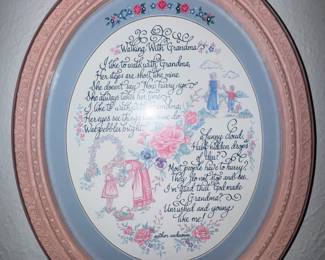 Walking With Grandma
I like to walk with Grandma,
Her steps are short like mine.
She doesn't say "Now hurry up"
She always takes her time.
I like to walk with Grandma,
Her eyes see things mine do
Wet pebbles bright,
a funny cloud,
Half hidden drops
of dew!
Most people have to hurry,
They do not stop and see.
I'm glad that God made
Grandma
Unrushed and young
like me!
author unknown